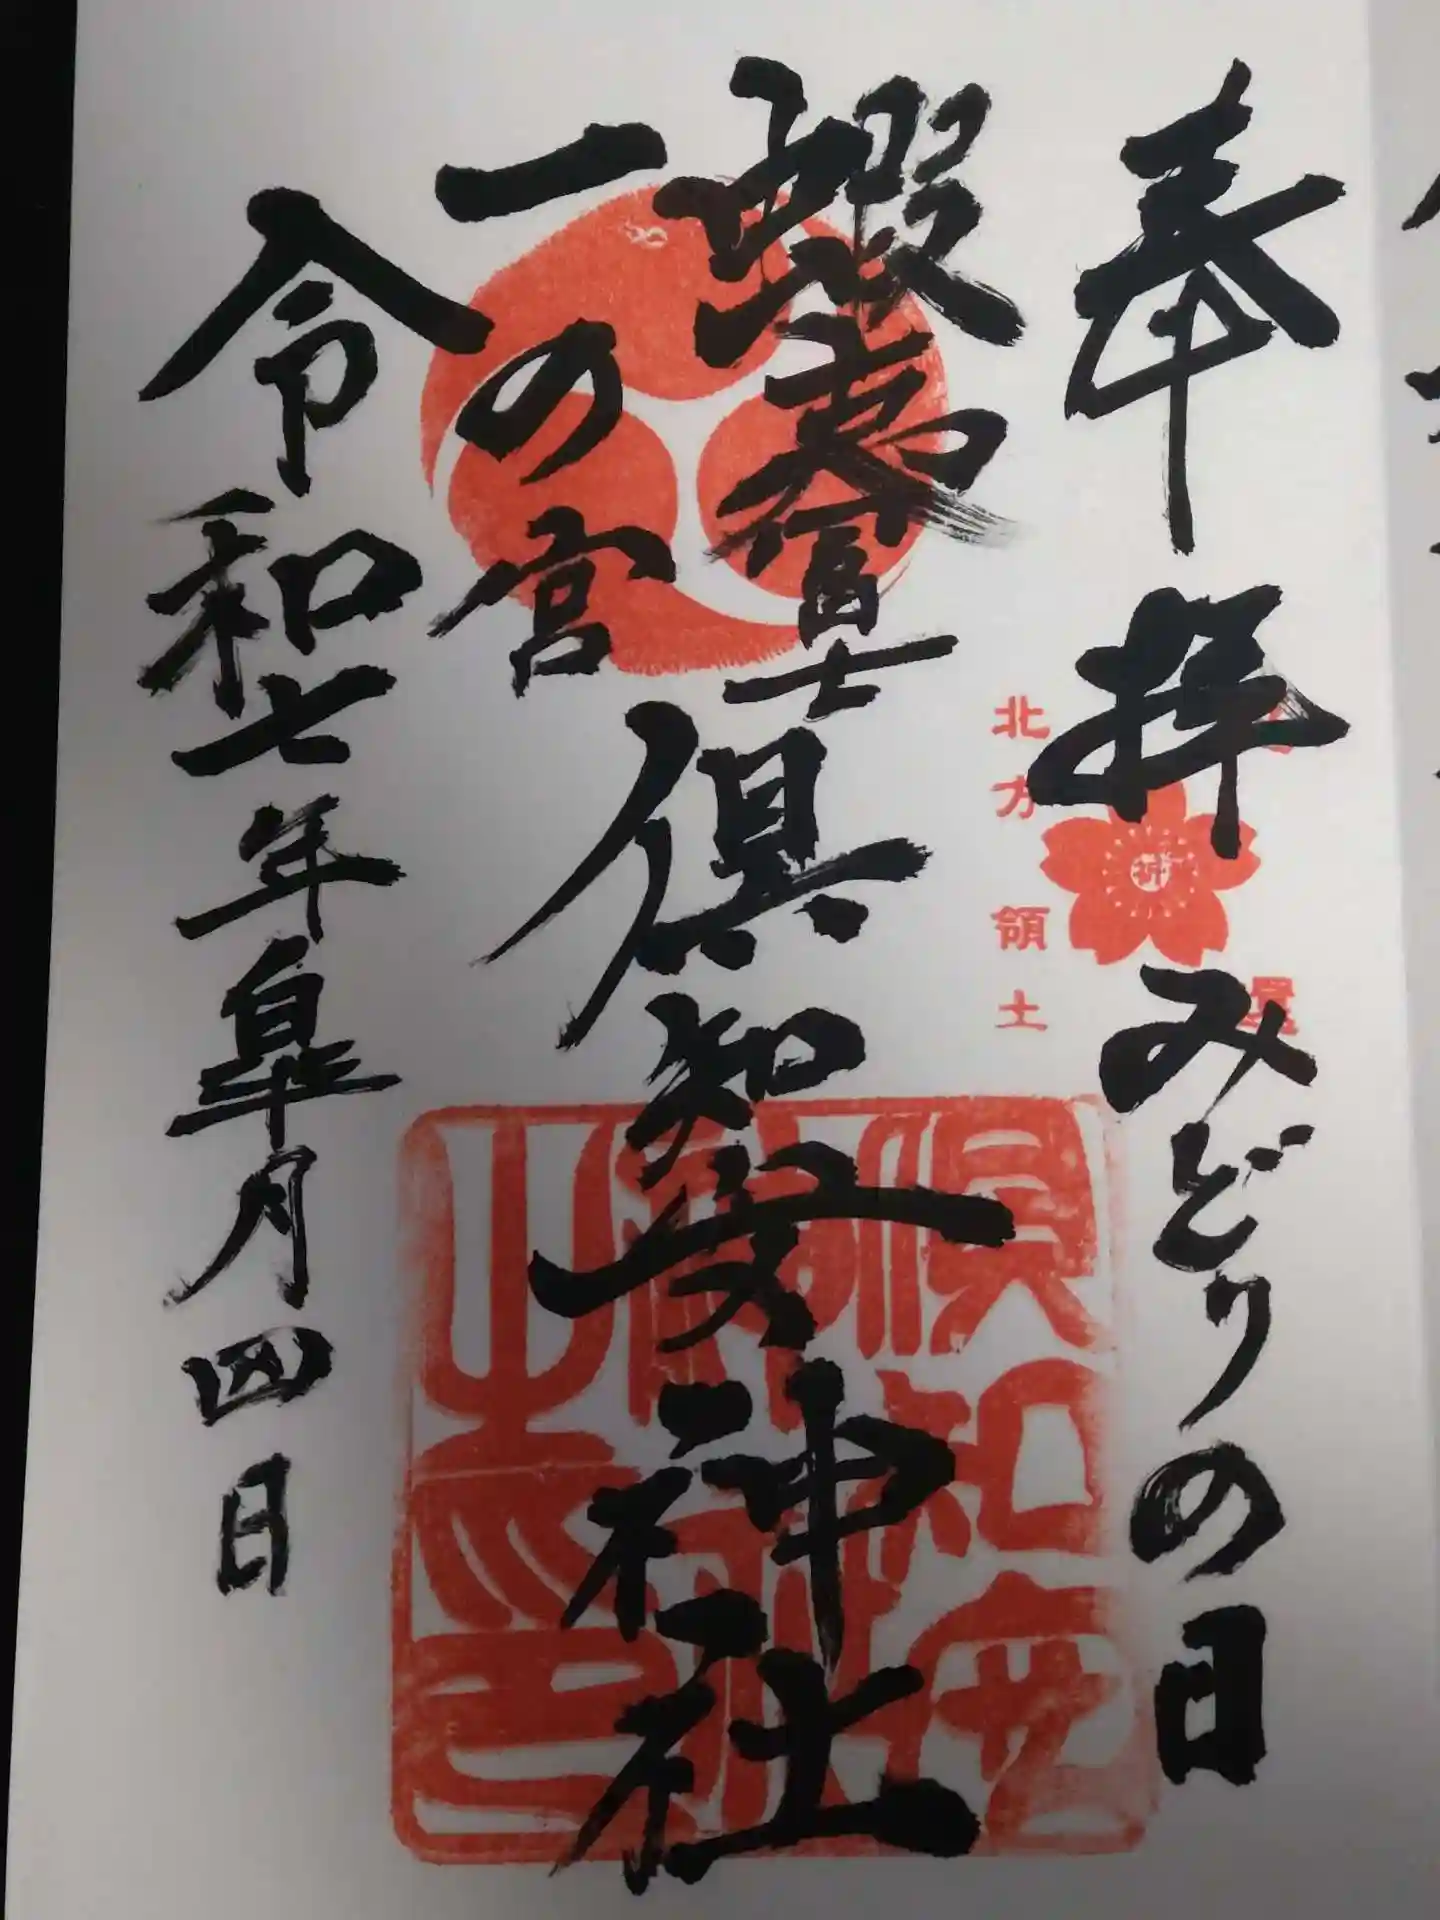 奉拝 みどりの日
北方領土
還
蝦夷富士 倶知安神社
一の宮
令和七年皐月四日
倶知安
神社
之印